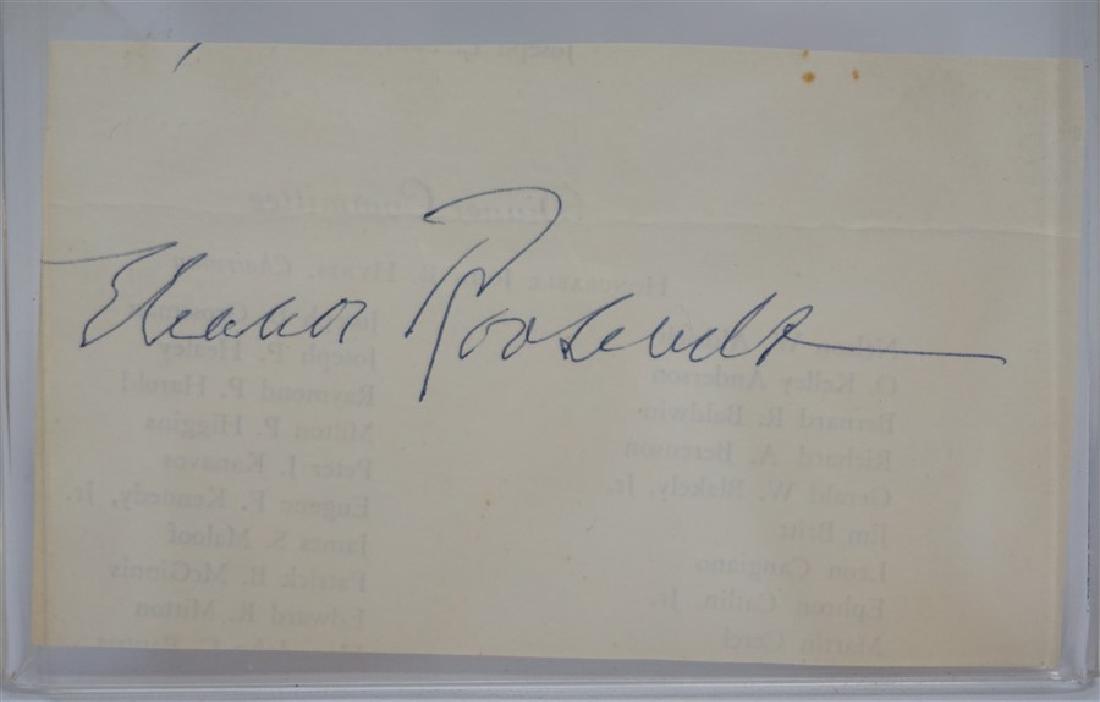 Eleanor Roosevelt
Dinner Committee
HONORABLE HYNES, Chairman
O. Kelley Anderson
Bernard R. Baldwin
Richard A. Berenson
Gerald W. Blakely, Jr.
Jim Britt
Leon Cangiano
Ephron Catlin, Jr.
Martin Cerel
Joseph P. Healey
Raymond P. Harold
Milton P. Higgins
Peter J. Kanavos
Eugene F. Kennedy, Jr.
James S. Maloof
Patrick B. McGinnis
Edward R. Mitton